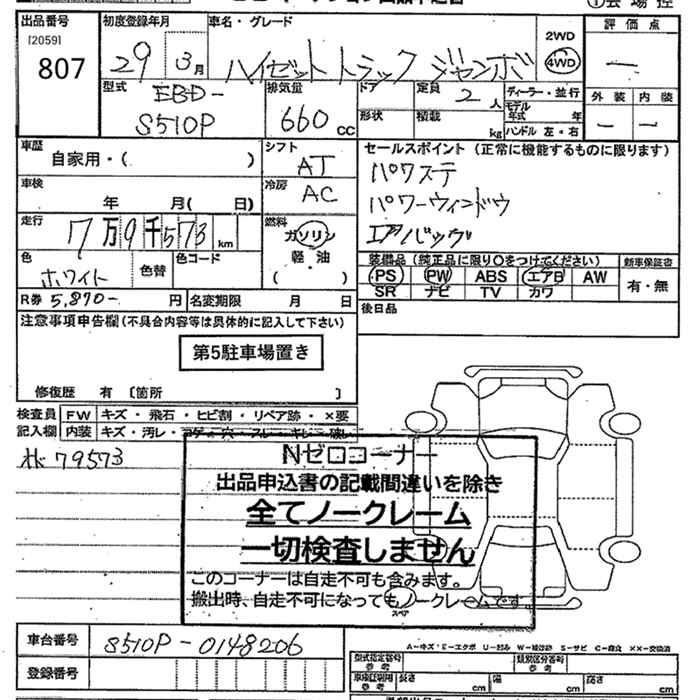 ①会場控
出品番号 初度登録年月 車名・グレード 評価点
[2059]
807 29 3月 ハイゼットトラック ジャンボ 2WD 4WD ー
型式 排気量 ドア 定員 ディーラー・並行 外装 内装
EBD-
S510P 660 CC 2人 モデル年式 年
形状 積載 kg ハンドル 左・右 ー ー
車歴 シフト セールスポイント (正常に機能するものに限ります)
自家用・( ) AT パワステ
車検 冷房 パワーウィンドウ
年 月( 日) AC エアバッグ
走行 7万9千573km 燃料 ガソリン
軽・油
( )
色 ホワイト 色替 色コード
装備品(純正品に限り○をつけてください) 新車保証書
PS PW ABS エアB AW 有・無
SR ナビ TV カワ
R券 5,870- 円 名変期限 月 日 後日品
注意事項申告欄(不具合内容等は具体的に記入して下さい)
第5駐車場置き
修復歴 有 〔箇所 〕
検査員 FW キズ・飛石・ヒビ割・リペア跡・×要
記入欄 内装 キズ・汚レ・コゲ・穴・スレ・キレ・破レ
Nゼロコーナー
79573
出品申込書の記載間違いを除き
全てノークレーム
一切検査しません
このコーナーは自走不可も含みます。
搬出時、自走不可になってもノークレームです
スペア
車台番号 S510P-0148206
A-キズ・E-エクボ U-凹み W-補修跡 S-サビ C-腐食 XX-交換済
登録番号
型式指定番号 参考 類別区分番号 参考
車検証期間 参考 長さ cm 幅 cm 高さ cm